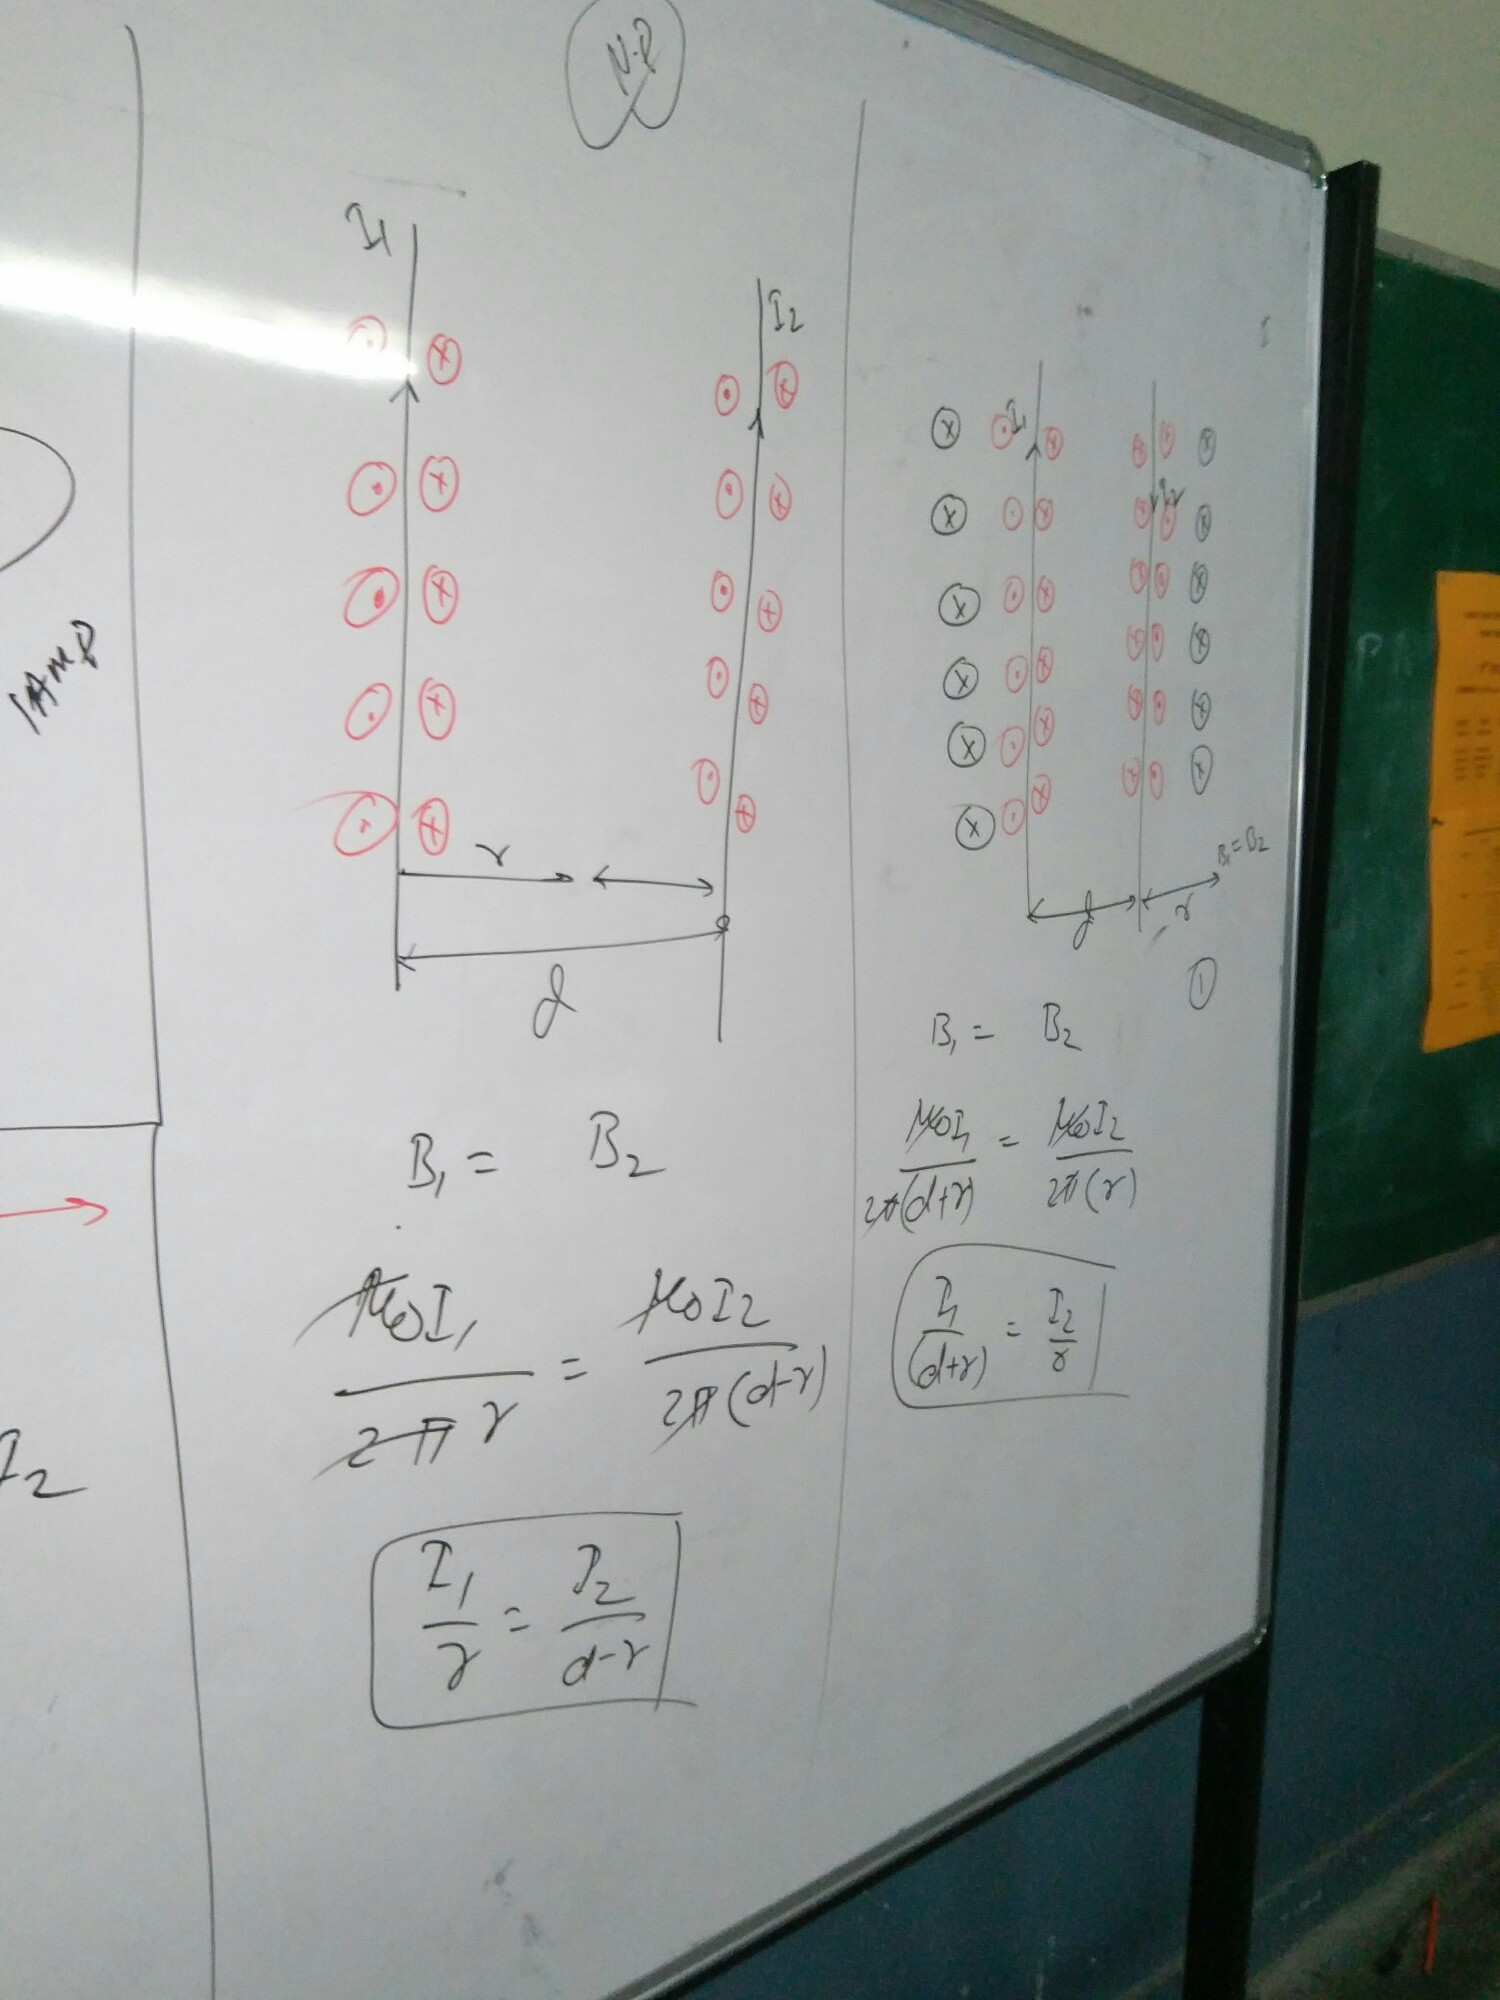 N.P
I₁
I₂
r
d
B₁ = B₂
μ₀I₁/2πr = μ₀I₂/2π(d-r)
I₁/r = I₂/d-r
I₁
I₂
B₁ = B₂
d
r
①
B₁ = B₂
μ₀I₁/2π(d+r) = μ₀I₂/2π(r)
I₁/(d+r) = I₂/r
1Amp
I₂